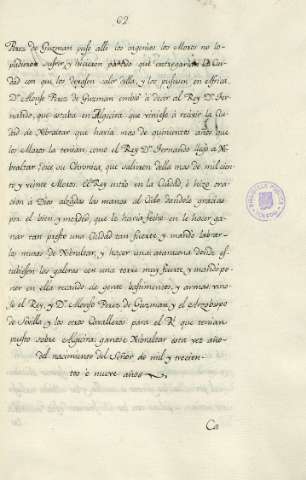 62
Perez de Guzman puso alli los ingenios los Moros no lo
pudieron sufrir, y hicieron partido que entregarian la Ciu-
dad con que los dexasen salir della, y los pusiesen en Africa.
Dn. Alonso Perez de Guzman embió à decir al Rey Dn. Fer-
nando, que estaba en Algecira que viniese à recivir la Ciu-
dad de Xibraltar que havia mas de quinientos años que
los Moros la tenian, como el Rey Dn. Fernando llegó à Xi-
braltar dice su Chronica, que salieron della mas de mil cien-
to y veinte Moros. El Rey entró en la Ciudad, è hizo ora-
cion à Dios alzadas las manos al Cielo dandole gracias
por el bien, y merced, que le havia fecho en le hacer ga-
nar tan presto una Ciudad tan fuerte, y mandó labrar
los muros de Xibraltar, y hacer una atarazana donde es-
tubiesen las galeras con una torre muy fuerte, y mandó po-
ner en ella recaudo de gente bastimentos, y armas, vino-
se el Rey, y Dn. Alonso Perez de Guzman, y el Arzobispo
de Sevilla y los otros Cavalleros para el Rl. que tenian
puesto sobre Algecira, ganose Xibraltar esta vez año
del nacimiento del Señor de mil y trecien-
tos è nueve años
Ca